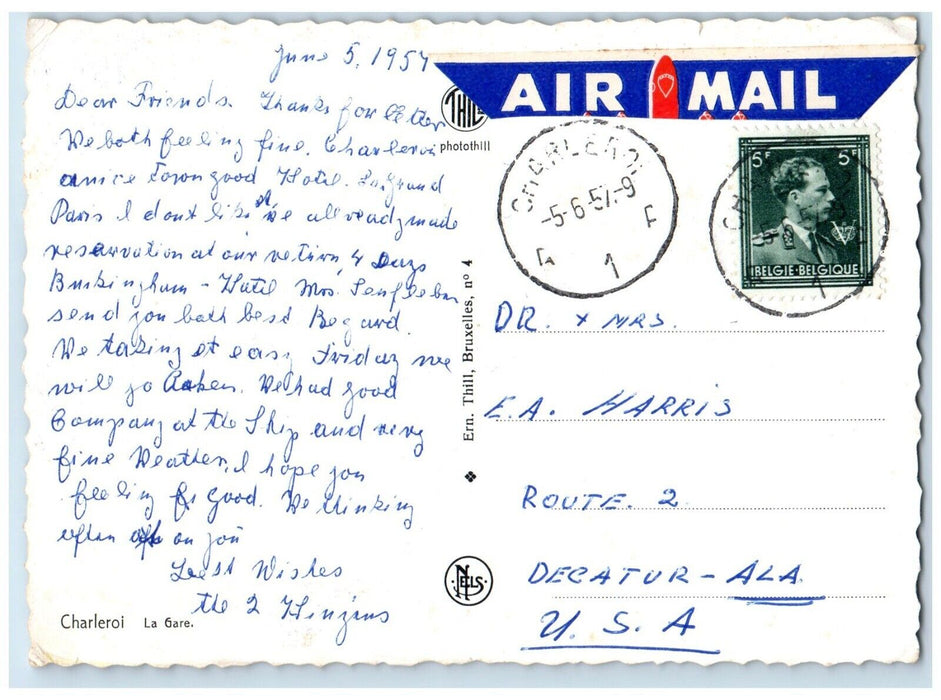 June 5, 1957
Dear Friends. Thanks for letter
We both feeling fine. Charleroi
a nice Town good Hotel.
Paris I dont like it we allready made
reservation at our return, 4 Days
Buckingham - Hotel Mrs.
send you both best Regard.
We taking et easy, Friday we
will go Aaken. We had good
Company at the Ship and very
fine Weather, I hope you
feeling good. We thinking
often on you
Best Wishes
the 2
Charleroi La Gare.
AIR MAIL
THILL
photothill
CHARLEROI
-5-6-57.-9
1 F
5F 5F
BELGIE-BELGIQUE
Ern. Thill, Bruxelles, nº 4
NELS
DR. + MRS.
E.A. HARRIS
ROUTE. 2
DECATUR - ALA.
U.S.A